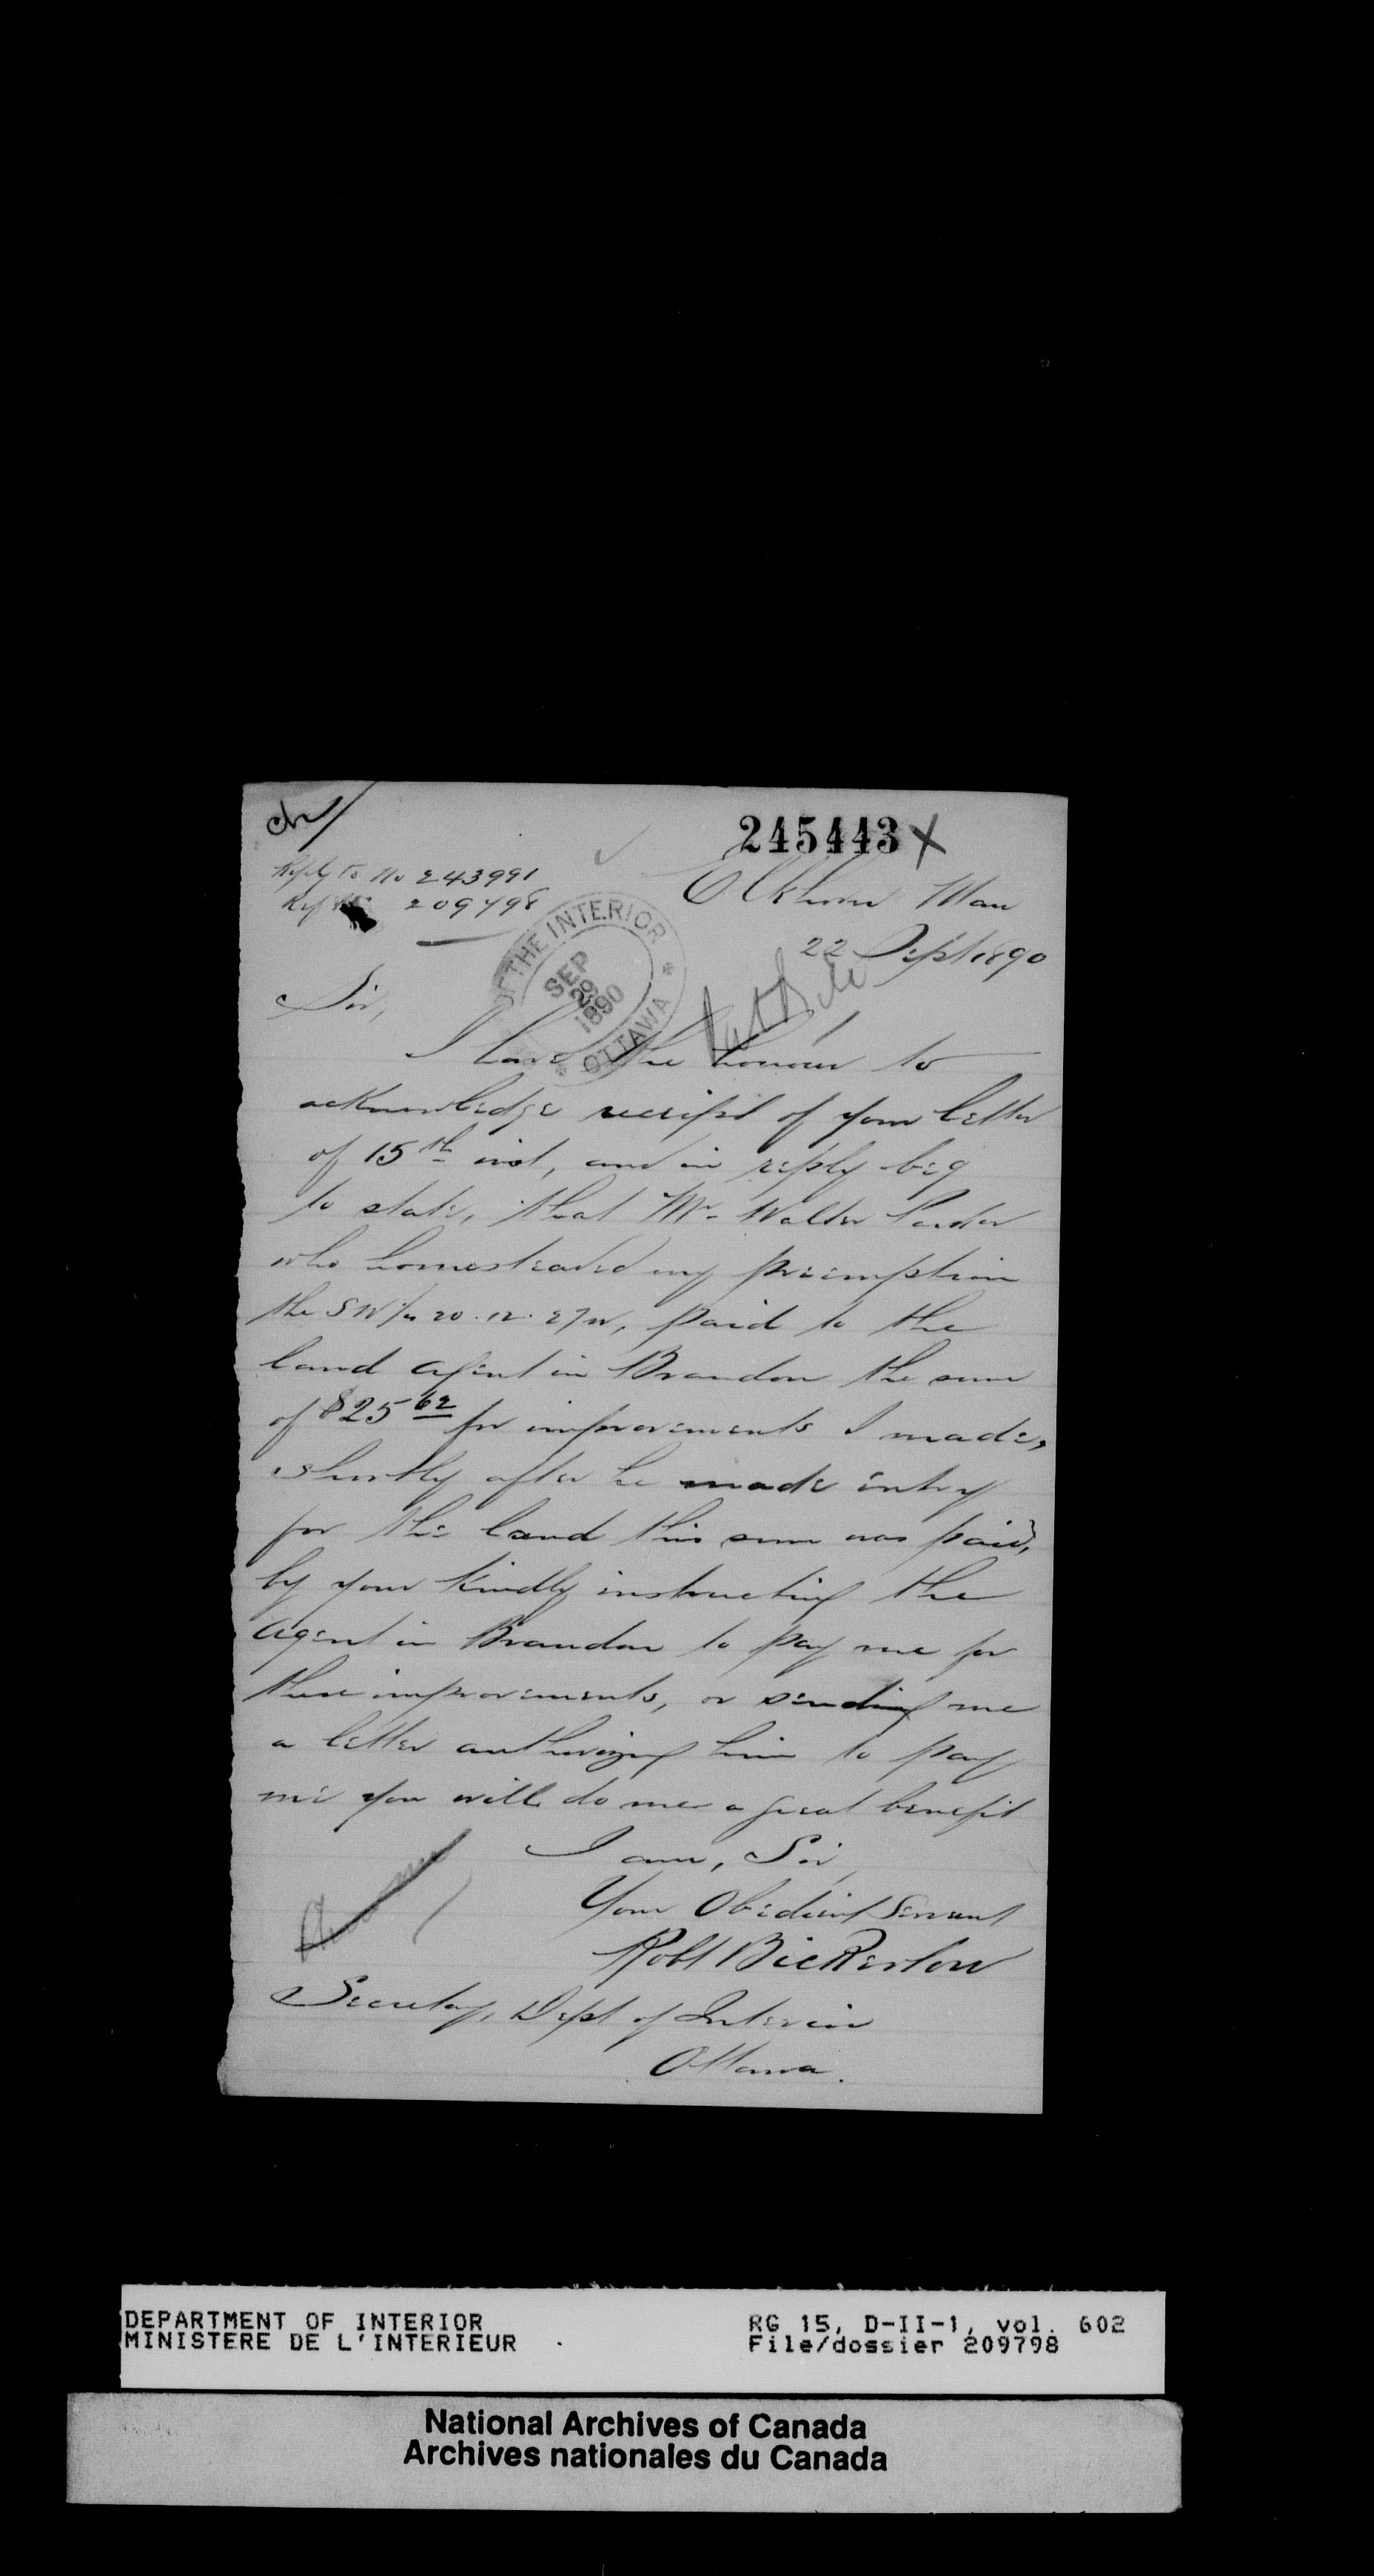 245443 X
Reply to No 243991
Ref No 209798
Elkhorn Man
22 Sept 1890
OF THE INTERIOR
SEP
29
1890
OTTAWA
Sir,
I have the honour to
acknowledge receipt of your letter
of 15th inst, and in reply beg
to state, that Mr. Walter
who homesteaded my preemption
the SW 1/4 20.12.27W, paid to the
land agent in Brandon the sum
of $25 62 for improvements I made,
shortly after he made entry
for the land this sum was paid,
by your kindly instructing the
agent in Brandon to pay me for
these improvements, or sending me
a letter authorizing him to pay
me you will do me a great benefit
I am, Sir,
Your Obedient Servant
Robt Bickerton
Secretary, Dept of Interior
Ottawa.
DEPARTMENT OF INTERIOR
MINISTERE DE L'INTERIEUR
RG 15, D-II-1, vol. 602
File/dossier 209798
National Archives of Canada
Archives nationales du Canada